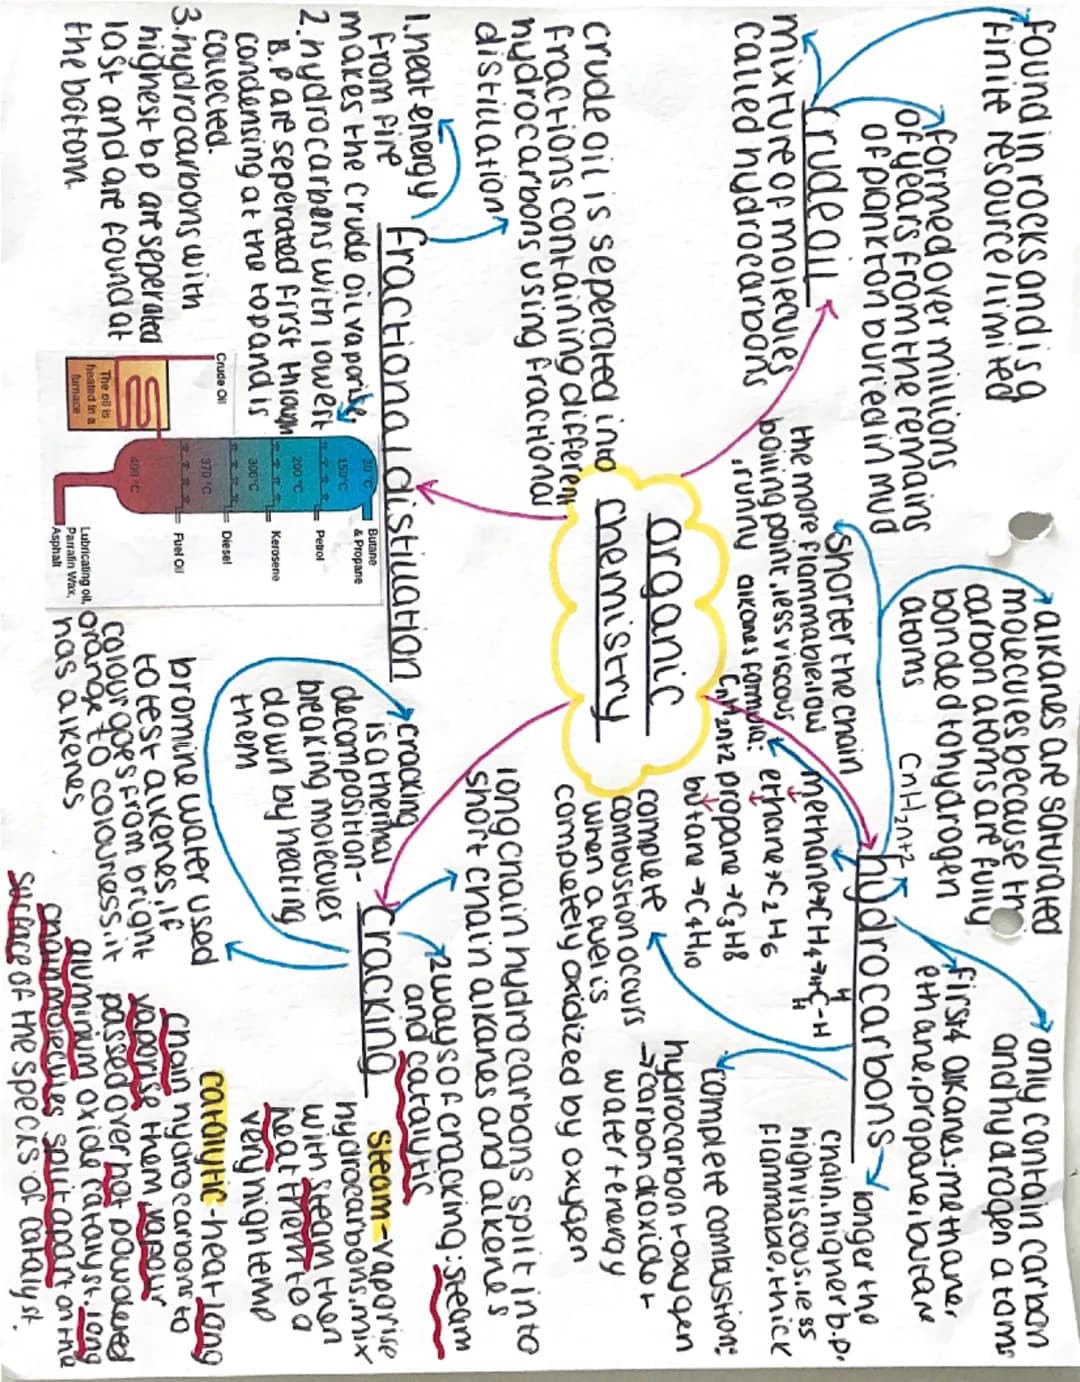 found in rocks and is a
finite resource/limited
formed over millions
of years from the remains
of plankton buried in mud
crude oil
mixture of molecules
called hydrocarbons
alkanes are saturated
molecules because th
carbon atoms are fully
bonded to hydrogen
atoms
CnH2n+2
only contain carbon
and hydrogen atoms
first 4 alkanes: methane,
ethane, propane, butane
hydrocarbons
longer the
chain, higher b.p.
high viscous, less
flammable, thick
shorter the chain
the more flammable, low
boiling point, less viscous
, runny
alkanes formula:
CnH2n+2
methane→CH4→H-C-H
H
H
ethane→C2H6
propane→C3H8
butane→C4H10
complete
combustion occurs
when a fuel is
completely oxidized by oxygen
complete combustion:
hydrocarbon + oxygen
→carbon dioxide +
water + energy
organic
chemistry
crude oil is seperated into
fractions containing different
hydrocarbons using fractional
distillation
fractional distillation
1. heat energy
from fire
makes the crude oil vaporise
2. hydrocarbons with lowest
B.P are seperated first through
condensing at the top and is
collected.
3. hydrocarbons with
highest bp are seperated
last and are found at
the bottom
Crude Oil
The oil is
heated in a
furnace
20 °C
150°C
200 °C
300°C
370 °C
400 °C
Butane
& Propane
Petrol
Kerosene
Diesel
Fuel Oil
Lubricating oil,
Parrafin Wax,
Asphalt
long chain hydrocarbons split into
short chain alkanes and alkenes
cracking
2 ways of cracking: steam
and catalytic
cracking
is a thermal
decomposition-
breaking molecules
down by heating
them
bromine water used
to test alkenes, if
colour goes from bright
orange to colourless, it
has alkenes
steam-vaporise
hydrocarbons, mix
with steam then
heat them to a
very high temp
catalytic heat long
chain hydrocarbons to
vaporise them vapour
passed over hot powdered
aluminium oxide catalyst. long
chain molecules split apart on the
surface of the specks of catalyst.